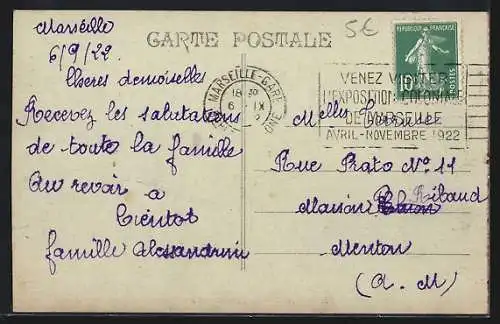 Marseille
6/9/22
5€
CARTE POSTALE
REPUBLIQUE FRANÇAISE
10
POSTES
MARSEILLE-GARE
18 30
6 IX
VENEZ VISITER
L'EXPOSITION COLONIALE
DE MARSEILLE
AVRIL-NOVEMBRE 1922
Chères demoiselles
Recevez les salutations
de toute la famille
Au revoir à
bientot
famille Alessandrini
Melles
Rue Prato No 11
Maison Ribaud
Menton
(A. M)